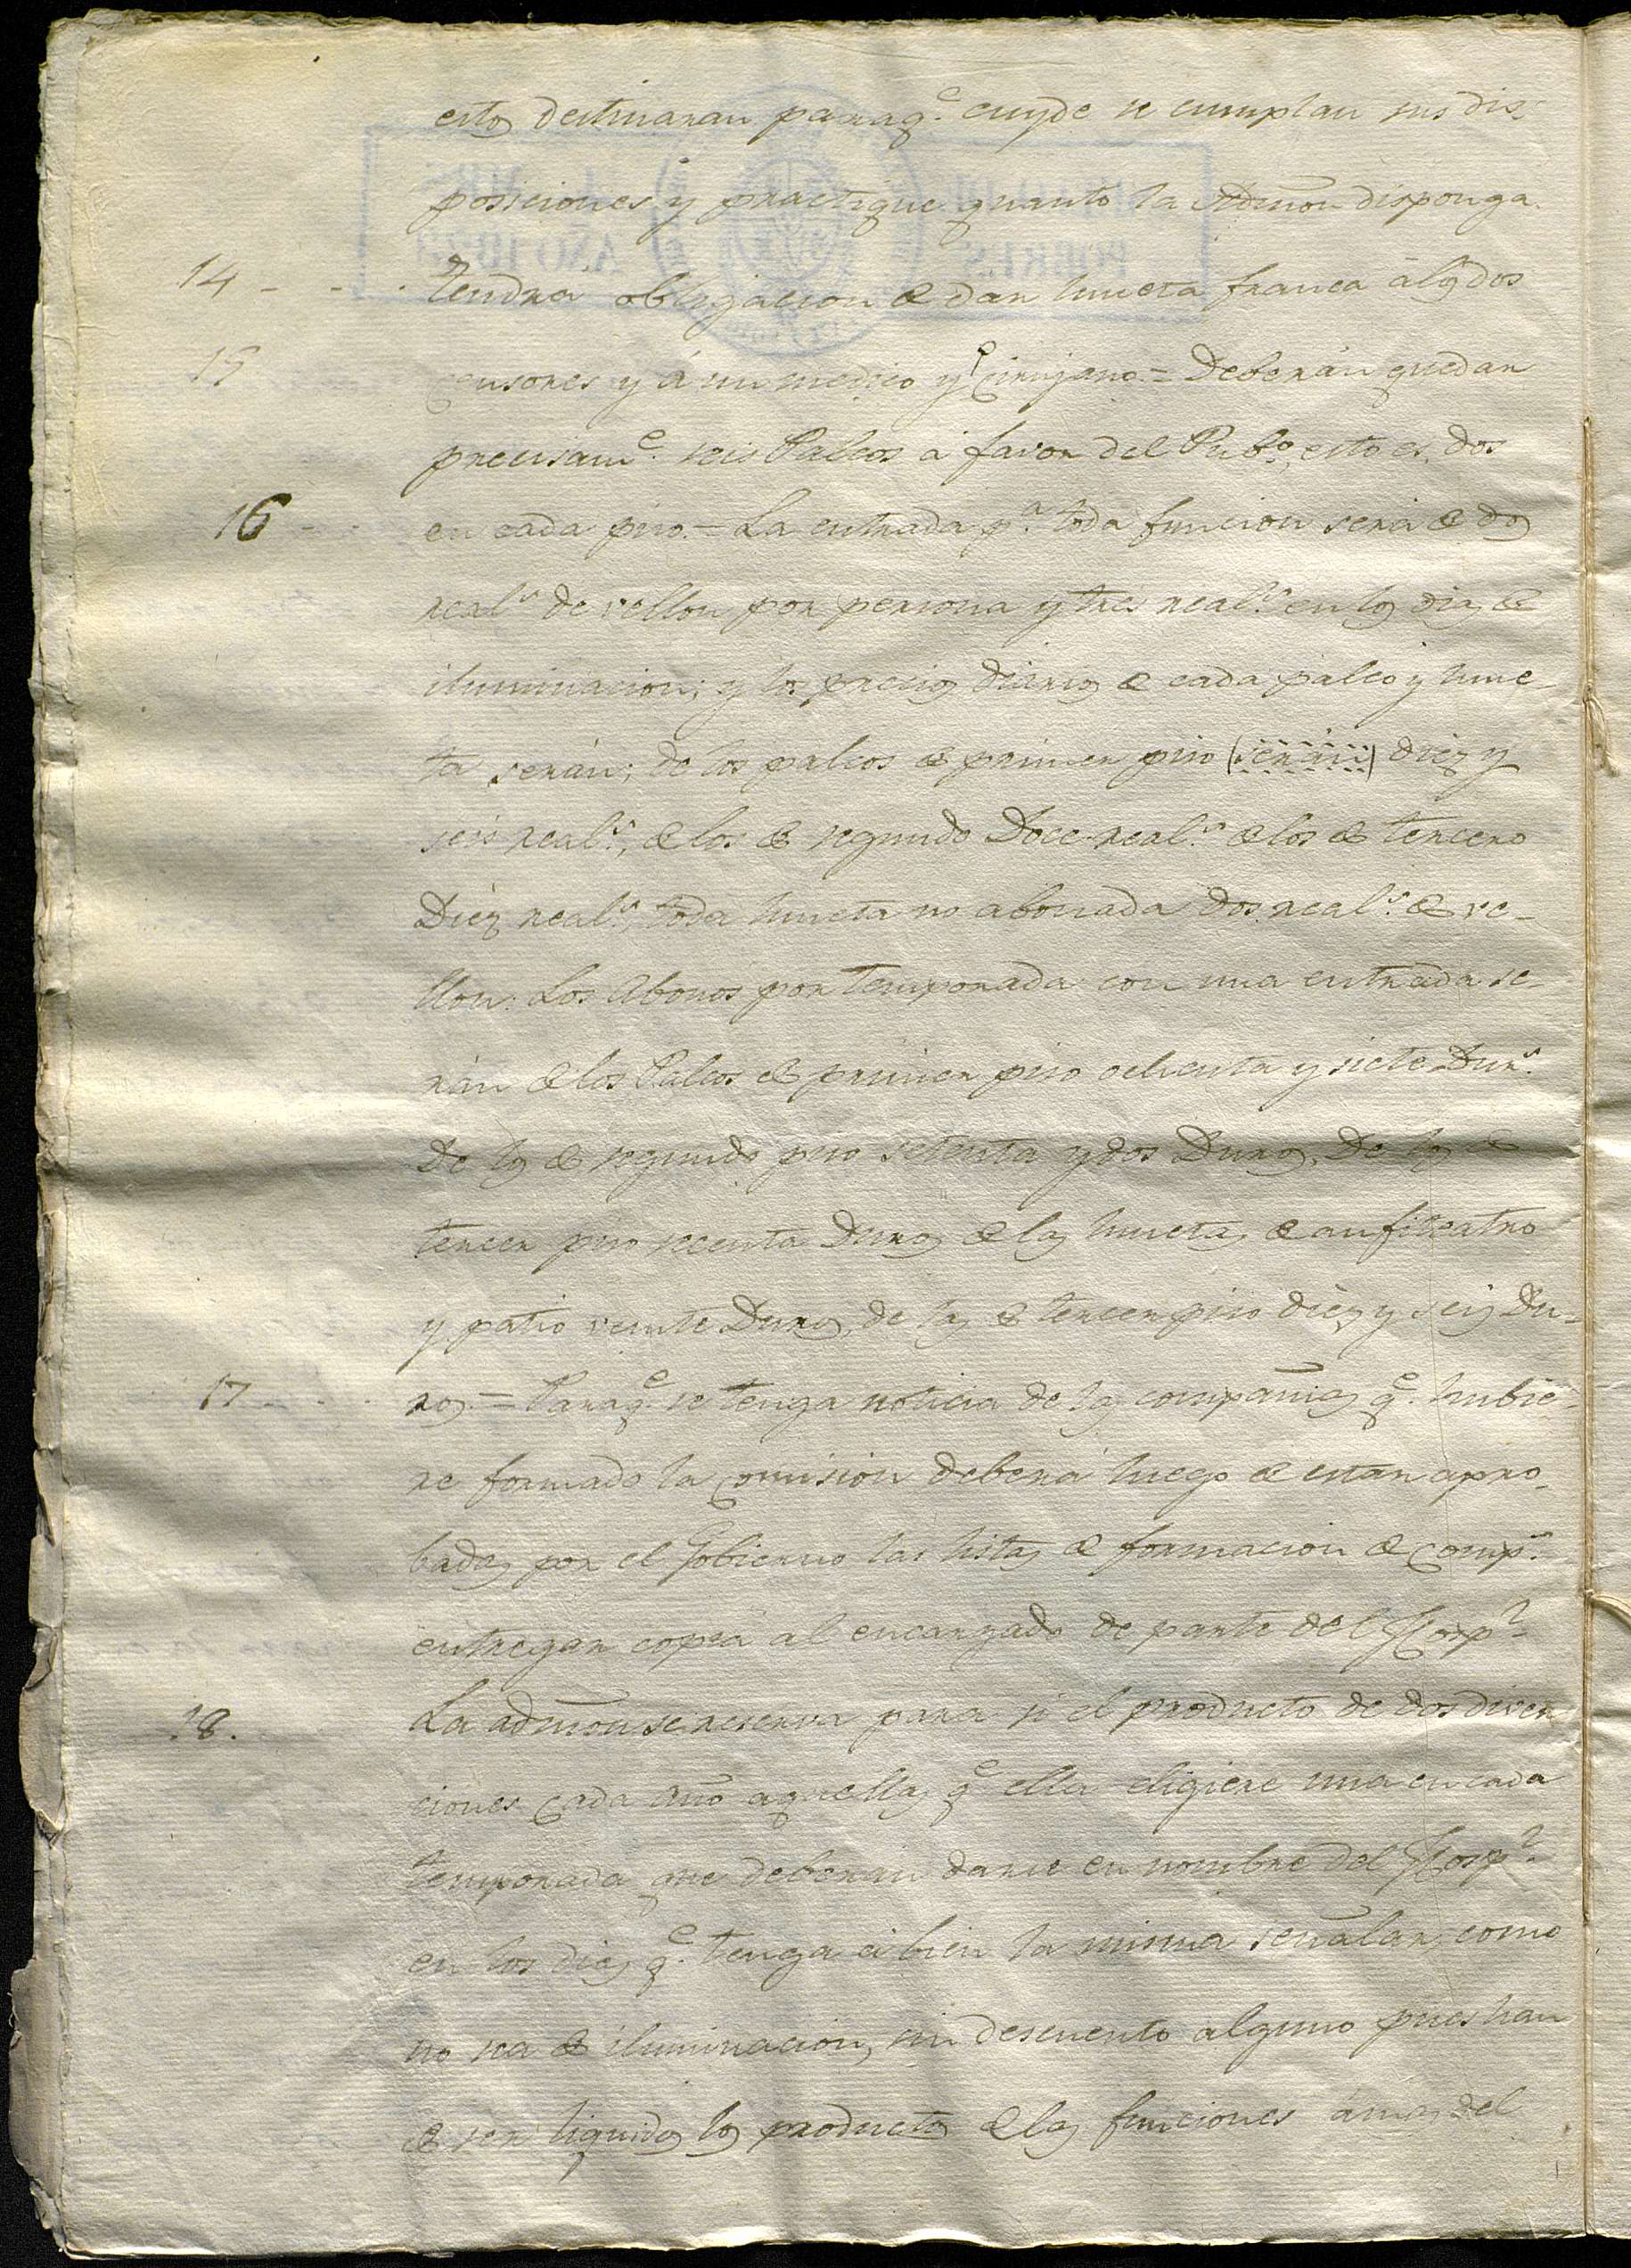 estos destinaran paraq.e cuyde se cumplan sus dis-
posiciones y practique quanto la Admon disponga.
14 - - - tendrá obligacion de dar luneta franca á los dos
15 censores y á un medico y cirujano = Deberán quedar
precisam.e seis Palcos á favor del Pub.o, esto es, dos
16 - - en cada piso. = La entrada p.a toda funcion será de dos
real.s de vellon por persona y tres real.s en los dias de
iluminacion; y los precios diarios de cada palco y lune-
ta serán; de los palcos de primer piso (serán) diez y
seis real.s, de los de segundo Doce real.s de los de tercero
Diez real.s, toda luneta no abonada dos real.s de ve-
llon. Los Abonos por temporada con una entrada se-
rán de los Palcos de primer piso ochenta y siete Dur.s
De los de segundo piso setenta y dos Duros, De los de
tercer piso secenta Duros de las lunetas de anfiteatro
y patio veinte Duros, de las de tercer piso diez y seis Du-
17 - - - ros. = Paraq.e se tenga noticia de las compañias q.e hubie-
re formado la comision deberá luego de estar apro-
badas por el Gobierno las listas de formacion de comp.s
entregar copia al encargado de parte del Hosp.l
18. La admon se reserva para si el producto de dos diver-
ciones cada año aquellas q.e ella eligiere una en cada
temporada que deberan darse en nombre del Hosp.l
en los dias q.e tenga á bien la misma señalar como
no sea de iluminacion, sin descuento alguno pues han
de ser liquidos los productos de las funciones á mas del